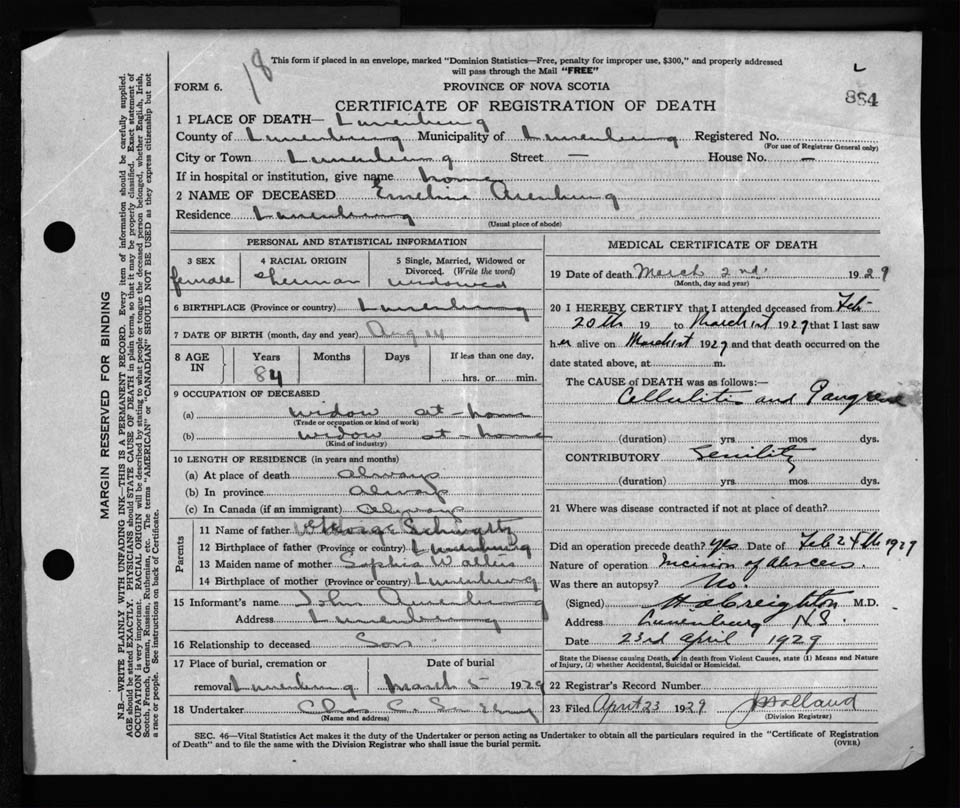 18
This form if placed in an envelope, marked "Dominion Statistics—Free, penalty for improper use, $300," and properly addressed
will pass through the Mail "FREE"
L
FORM 6.
PROVINCE OF NOVA SCOTIA
884
CERTIFICATE OF REGISTRATION OF DEATH
1 PLACE OF DEATH— Lunenburg
County of Lunenburg Municipality of Lunenburg Registered No.
(For use of Registrar General only)
City or Town Lunenburg Street — House No. —
If in hospital or institution, give name home
2 NAME OF DECEASED Emeline Arenburg
Residence Lunenburg
(Usual place of abode)
PERSONAL AND STATISTICAL INFORMATION
3 SEX
female
4 RACIAL ORIGIN
5 Single, Married, Widowed or
Divorced. (Write the word)
widowed
6 BIRTHPLACE (Province or country) Lunenburg
7 DATE OF BIRTH (month, day and year) Aug 14
8 AGE
IN
Years
84
Months
Days
If less than one day,
hrs. or min.
9 OCCUPATION OF DECEASED
(a) widow at-home
(Trade or occupation or kind of work)
(b) widow at-home
(Kind of industry)
10 LENGTH OF RESIDENCE (in years and months)
(a) At place of death always
(b) In province always
(c) In Canada (if an immigrant) Always
Parents
11 Name of father George Schwartz
12 Birthplace of father (Province or country) Lunenburg
13 Maiden name of mother Sophia Walters
14 Birthplace of mother (Province or country) Lunenburg
15 Informant's name John Arenburg
Address Lunenburg
16 Relationship to deceased Son
17 Place of burial, cremation or
removal Lunenburg
Date of burial
March 5 1929
18 Undertaker Chas C.
(Name and address)
MEDICAL CERTIFICATE OF DEATH
19 Date of death March 2nd 1929
(Month, day and year)
20 I HEREBY CERTIFY that I attended deceased from Feb
20th 19 to March 1st 1929 that I last saw
her alive on March 1st 1929 and that death occurred on the
date stated above, at m.
The CAUSE of DEATH was as follows:—
Cellulitis and Gangrene
(duration) yrs. mos. dys.
CONTRIBUTORY Senility
(duration) yrs. mos. dys.
21 Where was disease contracted if not at place of death?
Did an operation precede death? yes Date of Feb 24th 1929
Nature of operation Incision of abscess.
Was there an autopsy? No.
(Signed) H A Creighton M.D.
Address Lunenburg N.S.
Date 23rd April 1929
State the Disease causing Death, or in death from Violent Causes, state (1) Means and Nature
of Injury, (2) whether Accidental, Suicidal or Homicidal.
22 Registrar's Record Number
23 Filed April 23 1929 Holland
(Division Registrar)
SEC. 46—Vital Statistics Act makes it the duty of the Undertaker or person acting as Undertaker to obtain all the particulars required in the "Certificate of Registration
of Death" and to file the same with the Division Registrar who shall issue the burial permit.
(OVER)
MARGIN RESERVED FOR BINDING
N.B.—WRITE PLAINLY WITH UNFADING INK—THIS IS A PERMANENT RECORD. Every item of information should be carefully supplied.
AGE should be stated EXACTLY. PHYSICIANS should STATE CAUSE OF DEATH in plain terms, so that it may be properly classified. Exact statement of
OCCUPATION is very important. RACIAL ORIGIN will be described by stating to what people or tongue the deceased person belonged, whether English, Irish,
Scotch, French, German, Russian, Ruthenian, etc. The terms "AMERICAN" or "CANADIAN" SHOULD NOT BE USED as they express citizenship but not
a race or people. See instructions on back of Certificate.